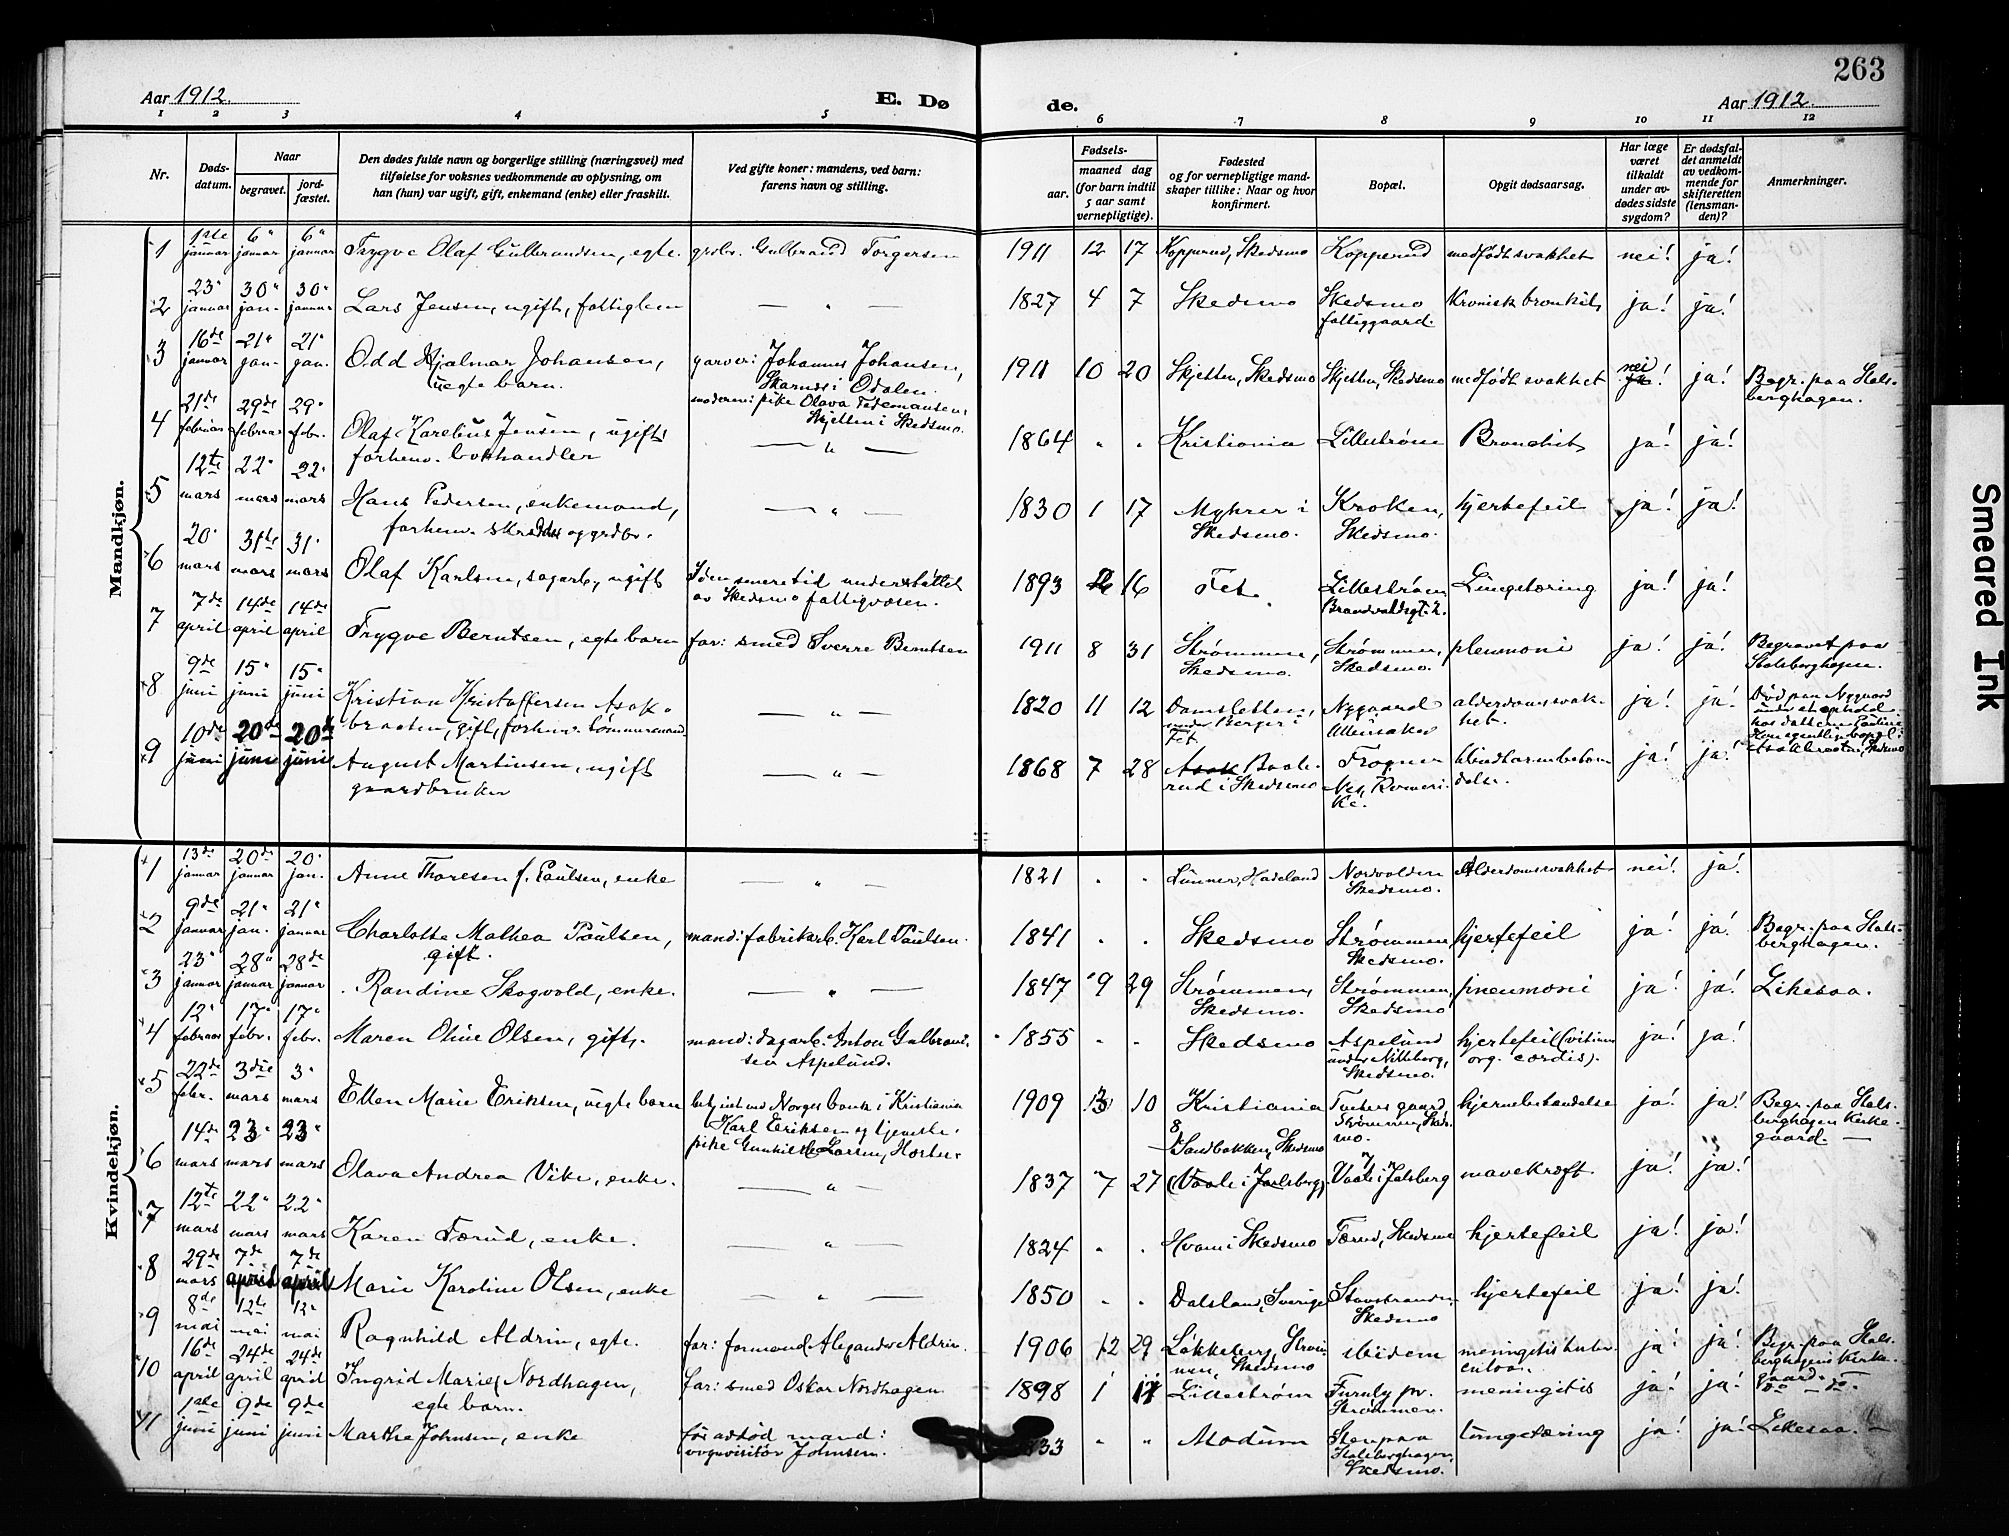 263
Aar 1912.
E. Dø
de.
Aar 1912.
1 2 3 4 5 6 7 8 9 10 11 12
Nr.
Døds-
datum.
Naar
begravet.
jord-
fæstet.
Den dødes fulde navn og borgerlige stilling (næringsvei) med
tilføielse for voksnes vedkommende av oplysning, om
han (hun) var ugift, gift, enkemand (enke) eller fraskilt.
Ved gifte koner: mandens, ved barn:
farens navn og stilling.
Fødsels-
aar.
maaned dag
(for barn indtil
5 aar samt
vernepligtige).
Fødested
og for vernepligtige mand-
skaper tillike: Naar og hvor
konfirmert.
Bopæl.
Opgit dødsaarsag.
Har læge
været
tilkaldt
under av-
dødes sidste
sygdom?
Er dødsfal-
det anmeldt
av vedkom-
mende for
skifteretten
(lensman-
den)?
Anmerkninger.
Mandkjøn.
1 1ste januar 6" januar 6" januar Trygve Olaf Gulbrandsen, egte. grdbr. Gulbrand Torgersen 1911 12 17 Kopperud, Skedsmo Kopperud medfødt svakhet nei! ja!
2 23" januar 30" jan. 30" januar Lars Jensen, ugift, fattiglem — " — 1827 4 7 Skedsmo Skedsmo fattiggaard. Kronisk bronkit ja! ja!
3 16de januar 21" jan. 21" jan. Odd Hjalmar Johansen, uegte barn. garver: Johannes Johansen, Skarnes i Odalen. moderen: pike Olava Tidemansen, Skjetten i Skedsmo. 1911 10 20 Skjetten, Skedsmo Skjetten, Skedsmo medfødt svakhet nei ja! ja! Begr. paa Stals-
berghagen.
4 21de februar 29de februar 29" febr. Olaf Karelius Jensen, ugift forhenv. bokhandler — " — 1864 " " Kristiania Lillestrøm Bronchit ja! ja!
5 12te mars 22" mars 22" mars Hans Pedersen, enkemand, forhenv. skrædder og grdbr. — " — 1830 1 17 Myhrer i Skedsmo. Kroken, Skedsmo. hjertefeil ja! ja!
6 20" mars 31te mars 31" mars Olaf Karlsen, sagarb., ugift understøttet av Skedsmo fattigvæsen. 1893 16 Fet. Lillestrøm Brandvaldsgt. 2. Lungetæring ja! ja!
7 7de april 14de april 14de april Trygve Berntsen, egte barn far: smed Sverre Berntsen 1911 8 31 Strømmen, Skedsmo. Strømmen, Skedsmo. pleumoni ja! ja! Begravet paa
Stalsberghagen.
8 9de juni 15" juni 15" juni Kristian Kristoffersen Asak-
braaten, gift, forhenv. tømmermand — " — 1820 11 12 Damsletten, under Berger i Fet Nygaard Ullensaker alderdomssvak-
het. ja! ja! Død paa Nygaard
under et ophold
hos datteren Pauline
Hans egentlige bopæl:
Asakbraaten, Skedsmo
9 10de juni 20de juni 20de juni August Martinsen, ugift gaardbruker — " — 1868 7 28 Asak Baale-
rud i Skedsmo Frogner Nes, Romeri-
ke. blindtarmbeten-
delse. ja! ja!
Kvindekjøn.
1 13de januar 20de januar 20" jan. Anne Thoresen f. Paulsen, enke — " — 1821 " " Lunner, Hadeland Nordvolden Skedsmo. Alderdomssvakhet nei! ja!
2 9de januar 21" jan. 21" januar Charlotte Mathea Paulsen, gift. mand: fabrikarb. Karl Paulsen. 1841 " " Skedsmo Strømmen Skedsmo. hjertefeil ja! ja! Begr. paa Stals-
berghagen.
3 23" januar 28" januar 28de januar Randine Skogvold, enke. — " — 1847 9 29 Strømmen, Skedsmo. Strømmen, Skedsmo pneumoni ja! ja! Likesaa.
4 12" februar 17" febr. 17" febr. Maren Oline Olsen, gift. mand: dagarb. Anton Gulbrand-
sen Aspelund. 1855 " " Skedsmo Aspelund under Nitteberg, Skedsmo. hjertefeil (vitium
org. cordis). ja! ja!
5 22de febr. 3die mars 3" mars Ellen Marie Eriksen, uegte barn betjent ved Norges bank i Kristiania Karl Eriksen og tjeneste-
pike Gunhild Larsen, 1909 3 10 Kristiania gaard Strømmen, Skeds-
mo. hjernebetændelse ja! ja! Begr. paa Stals-
berghagen Kirke-
gaard. —
6 14de mars 23" mars 23" mars Olava Andrea Vike, enke. — " — 1837 7 27 Sandbakken, Skedsmo (Vaale i Jarlsberg) Vaale i Jalsberg mavekræft. ja! ja!
7 12te mars 22" mars 22" mars Karen Tærud, enke. — " — 1824 " " Hvam i Skedsmo Tærud, Skedsmo hjertefeil ja! ja!
8 29de mars 7de april 7de april Marie Karoline Olsen, enke — " — 1850 " " Dalsland, Sverige Stavstranden, Skedsmo hjertefeil ja! ja!
9 8de mai 12te mai 12" mai Ragnhild Aldrin, egte. far: formand Alexander Aldrin. 1906 12 29 Løkkeberg, Strøm-
men, Skedsmo ibidem meningitis tuber-
culosa. ja! ja! Begr. paa Stals-
berghagens Kirke-
gaard.
10 16de april 24de april 24de april Ingrid Marie Nordhagen, egte barn. far: smed Oskar Nordhagen 1898 1 11 Lillestrøm Furuly pr. Strømmen. meningitis ja! ja! do — do.
11 1ste juni 9de juni 9de juni Marthe Johnsen, enke før avdød mand: vognvisitør Johnsen. 1833 " " Modum Sten paa Stalsberghagen, Skedsmo. lungetæring ja! ja! Likesaa. —
Smeared Ink